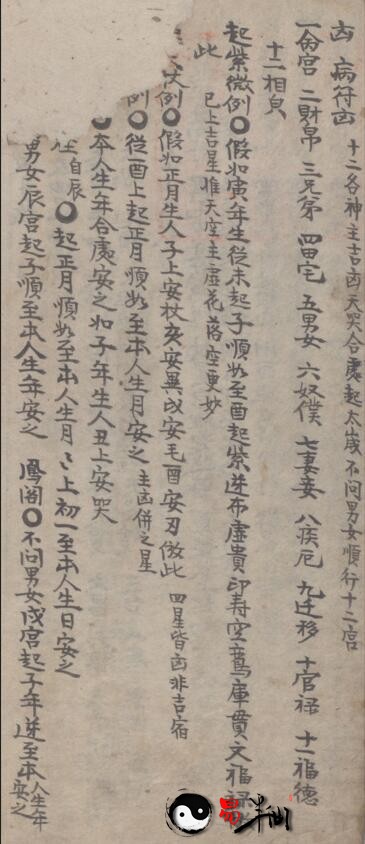 凶 病符凶 十二各神主吉凶天哭合處起太歲不問男女順行十二宮
一命宮 二財帛 三兄弟 四田宅 五男女 六奴僕 七妻妾 八疾厄 九迁移 十官祿 十一福德
十二相皃
起紫微例〇假如寅年生從未起子順如至酉起紫逆布虛貴印寿空鸞庫貫文福祿
此 已上吉星惟天空主虛花落空更妙
例〇假如正月生人子上安杖亥安異戌安毛酉安刃倣此 四星皆凶非吉宿
例〇從酉上起正月順如至本人生月安之 主凶併之星
〇本人生年合處安之如子年生人丑上安哭
自辰〇起正月順如至本人生月〻上初一至本人生日安之
男女辰宮起子順至本人生年安之 鳳閣〇不問男女戌宮起子年逆至本人生年安之
半仙